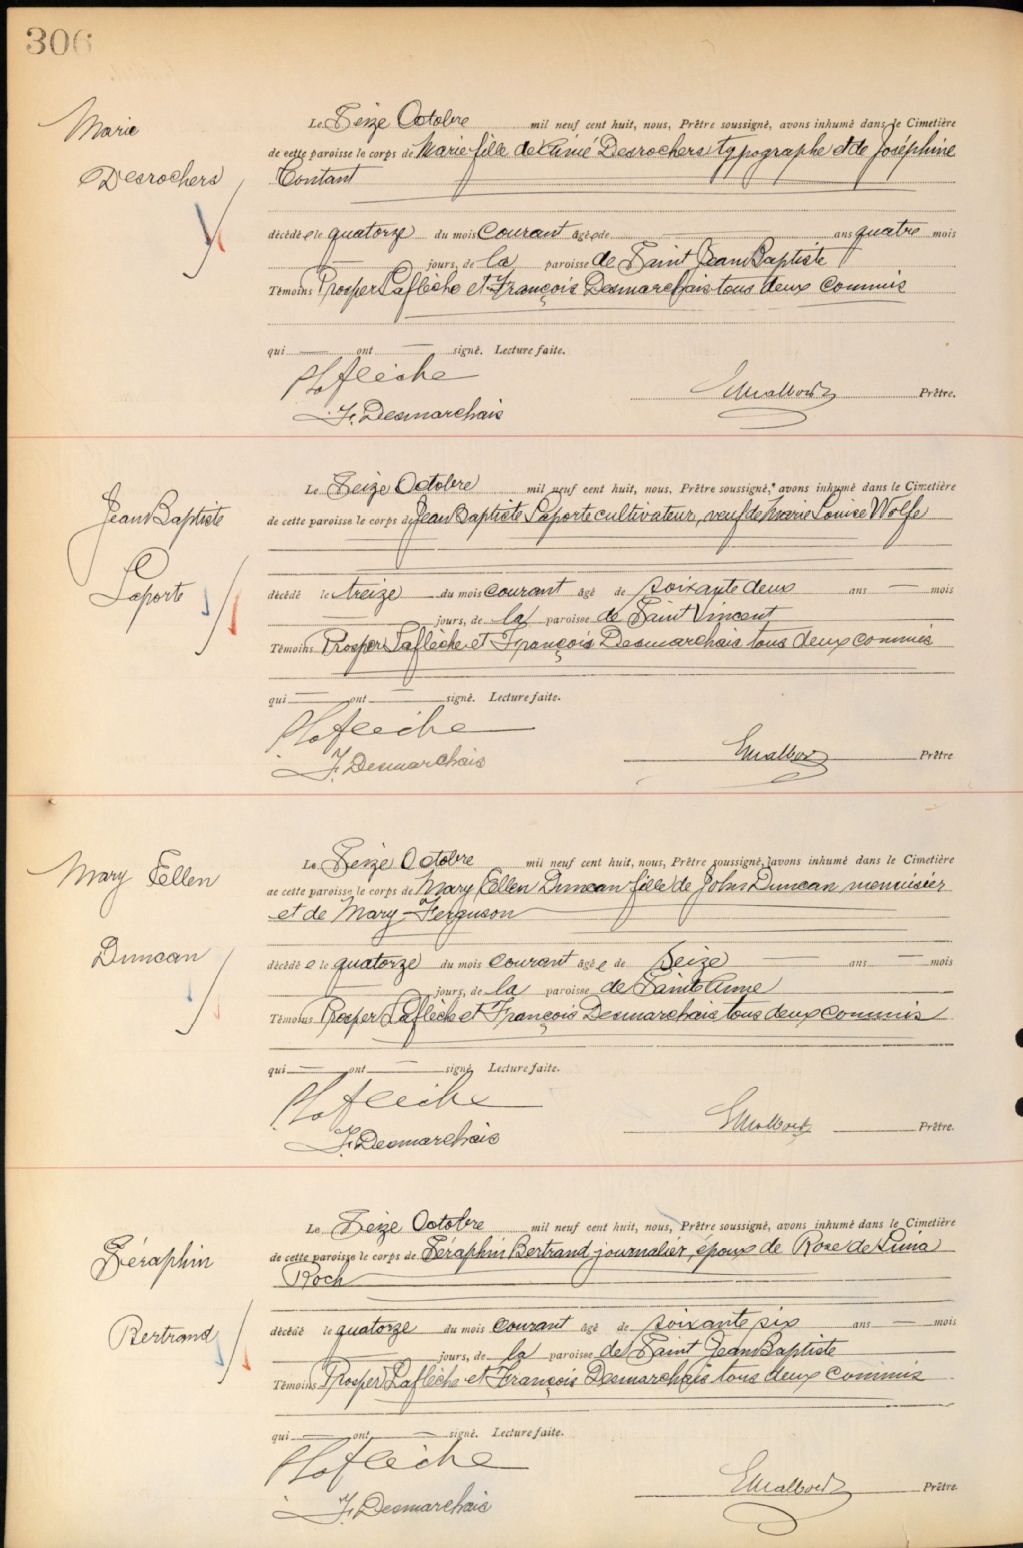 306
Marie
Desrochers
Le Seize Octobre mil neuf cent huit, nous, Prêtre soussigné, avons inhumé dans le Cimetière
de cette paroisse le corps de Marie fille de Aimé Desrochers typographe et de Joséphine
Contant
décédée le quatorze du mois courant âgée de ans quatre mois
jours, de la paroisse de Saint Jean Baptiste
Témoins Prosper Laflèche et François Desmarchais tous deux commis
qui ont signé. Lecture faite.
P Laflèche
Prêtre.
F. Desmarchais
Jean Baptiste
Laporte
Le Seize Octobre mil neuf cent huit, nous, Prêtre soussigné, avons inhumé dans le Cimetière
de cette paroisse le corps de Jean Baptiste Laporte cultivateur, veuf de Marie Louise Wolfe
décédé le treize du mois courant âgé de soixante deux ans mois
jours, de la paroisse de Saint Vincent
Témoins Prosper Laflèche et François Desmarchais tous deux commis
qui ont signé. Lecture faite.
P Laflèche
Prêtre
F. Desmarchais
Mary Ellen
Duncan
Le Seize Octobre mil neuf cent huit, nous, Prêtre soussigné, avons inhumé dans le Cimetière
de cette paroisse le corps de Mary Ellen Duncan fille de John Duncan menuisier
et de Mary Ferguson
décédée le quatorze du mois courant âgée de Seize ans mois
jours, de la paroisse de Sainte Anne
Témoins Prosper Laflèche et François Desmarchais tous deux commis
qui ont signé. Lecture faite.
P Laflèche
Prêtre.
F. Desmarchais
Séraphin
Bertrand
Le Seize Octobre mil neuf cent huit, nous, Prêtre soussigné, avons inhumé dans le Cimetière
de cette paroisse le corps de Séraphin Bertrand journalier, époux de Rose de Lima
Roch
décédé le quatorze du mois courant âgé de soixante six ans mois
jours, de la paroisse de Saint Jean Baptiste
Témoins Prosper Laflèche et François Desmarchais tous deux commis
qui ont signé. Lecture faite.
P Laflèche
Prêtre.
F. Desmarchais